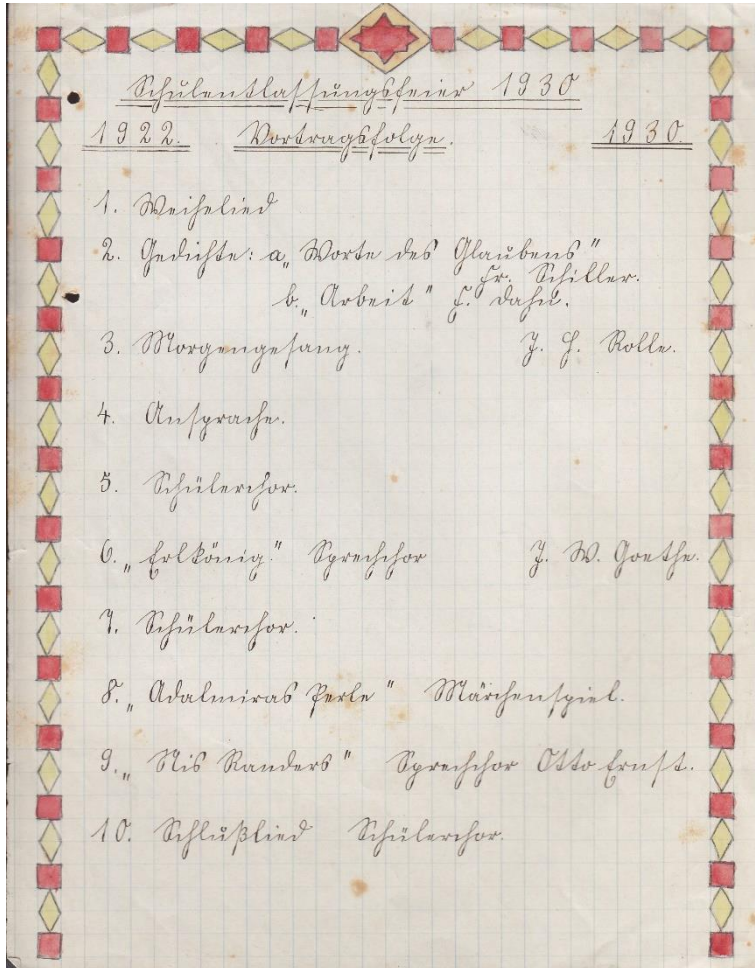 Schulentlassungsfeier 1930
1922. Vortragsfolge. 1930.
1. Weihelied
2. Gedichte: a „Worte des Glaubens"
Fr. Schiller.
b. „Arbeit" F. Dahn.
3. Morgengesang. J. H. Rolle.
4. Ansprache.
5. Schülerchor.
6. „Erlkönig." Sprechchor J. W. Goethe.
7. Schülerchor.
8. „Adalmiras Perle" Märchenspiel.
9. „Nis Randers" Sprechchor Otto Ernst.
10. Schlußlied Schülerchor.